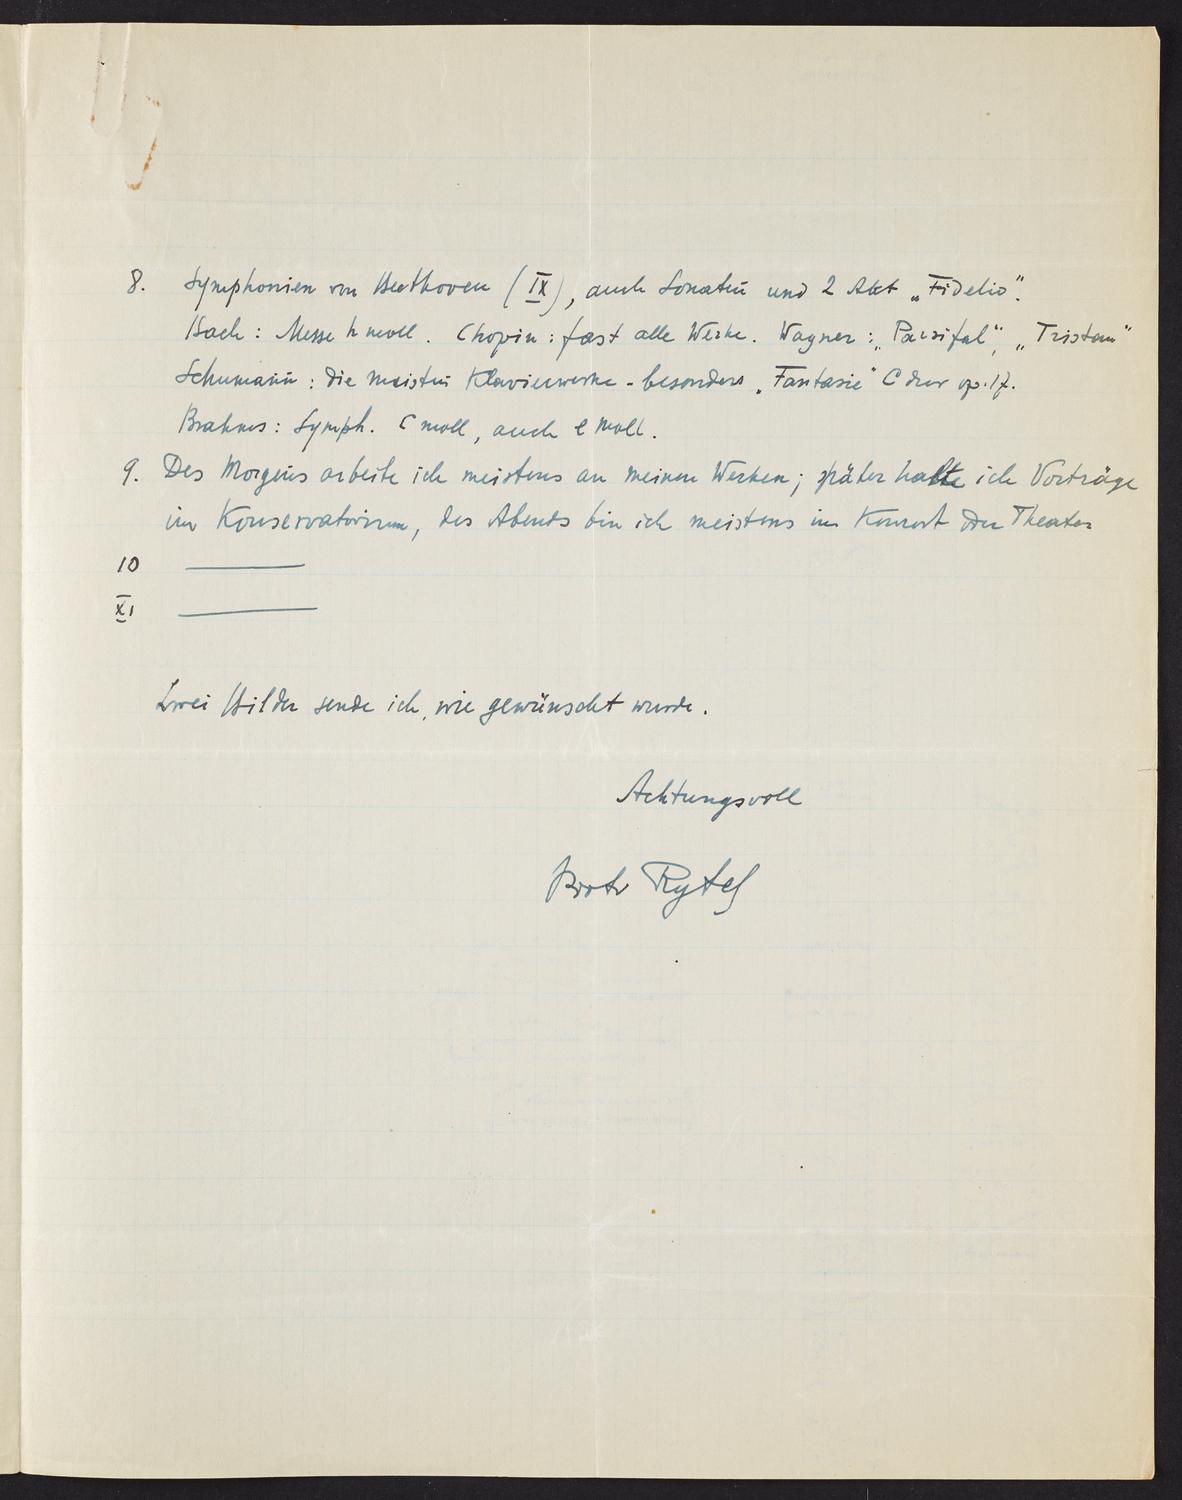 8. Symphonien von Beethoven (IX), auch Sonaten und 2 Akt „Fidelio".
Bach : Messe h moll. Chopin : fast alle Werke. Wagner : „Parsifal", „Tristan"
Schumann : die meisten Klavierwerke - besonders „Fantasie" C dur op. 17.
Brahms : Symph. C moll, auch e moll.
9. Des Morgens arbeite ich meistens an meinen Werken; später halte ich Vorträge
im Konservatorium, des Abends bin ich meistens im Konzert oder Theater
10 ———
XI ———
Zwei Bilder sende ich, wie gewünscht wurde.
Achtungsvoll
Piotr Rytel